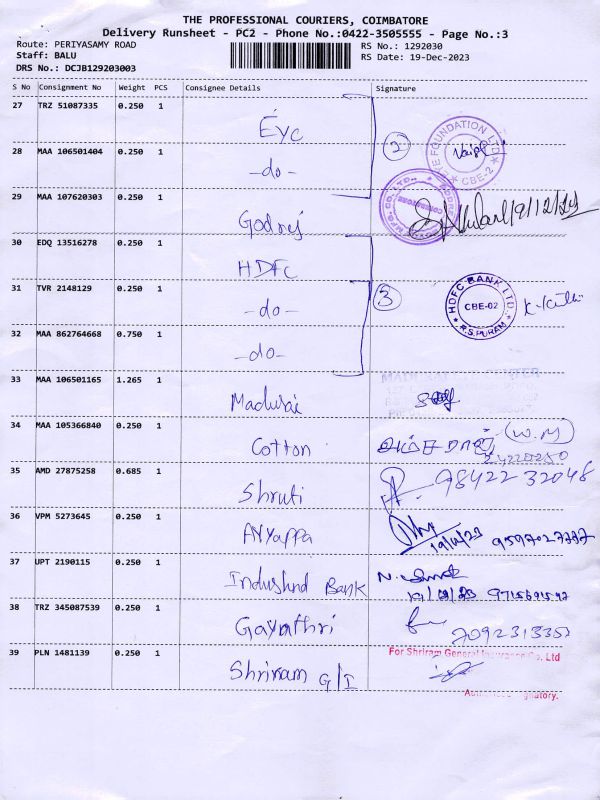 THE PROFESSIONAL COURIERS, COIMBATORE
Delivery Runsheet - PC2 - Phone No.:0422-3505555 - Page No.:3
Route: PERIYASAMY ROAD
RS No.: 1292030
Staff: BALU
RS Date: 19-Dec-2023
DRS No.: DCJB129203003
S No Consignment No Weight PCS Consignee Details Signature
27 TRZ 51087335 0.250 1 Eye
28 MAA 106501404 0.250 1 -do- 2
EYE FOUNDATION LTD CBE-2
29 MAA 107620303 0.250 1 Godrej 19/12/23
MFG. CO. LTD.
30 EDQ 13516278 0.250 1 HDFC
31 TVR 2148129 0.250 1 -do- 3
HDFC BANK LTD. CBE-02 R.S.PURAM
32 MAA 862764668 0.750 1 -do-
33 MAA 106501165 1.265 1 Madurai
34 MAA 105366840 0.250 1 Cotton (W.M)
35 AMD 27875258 0.685 1 Shruti 98422 32048
36 VPM 5273645 0.250 1 Ayyappa 9597027777
37 UPT 2190115 0.250 1 Indusind Bank
38 TRZ 345087539 0.250 1 Gayathri
39 PLN 1481139 0.250 1 Shriram G/I
For Shriram General Insurance Co. Ltd
Authorised Signatory.